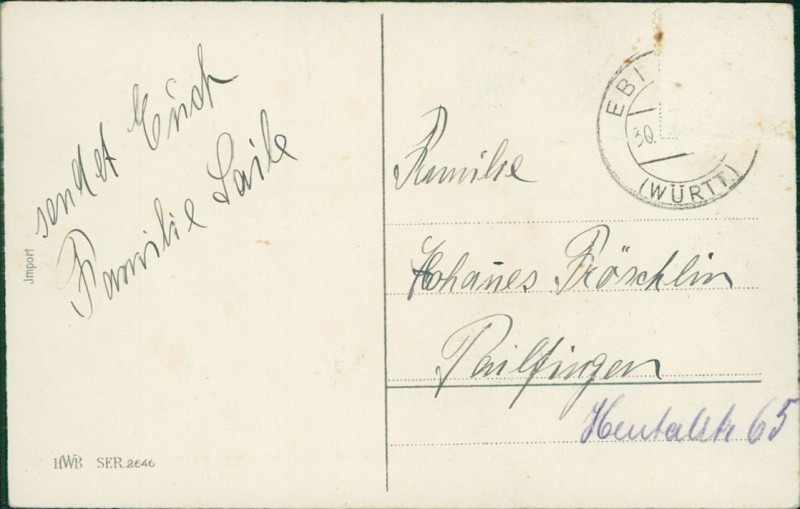 sendet Euch
Familie Saile
Jmport
HWB SER.2646
EBI
30.
(WÜRTT.)
Familie
Johanes Fröschlin
Tailfingen
Heutalstr 65